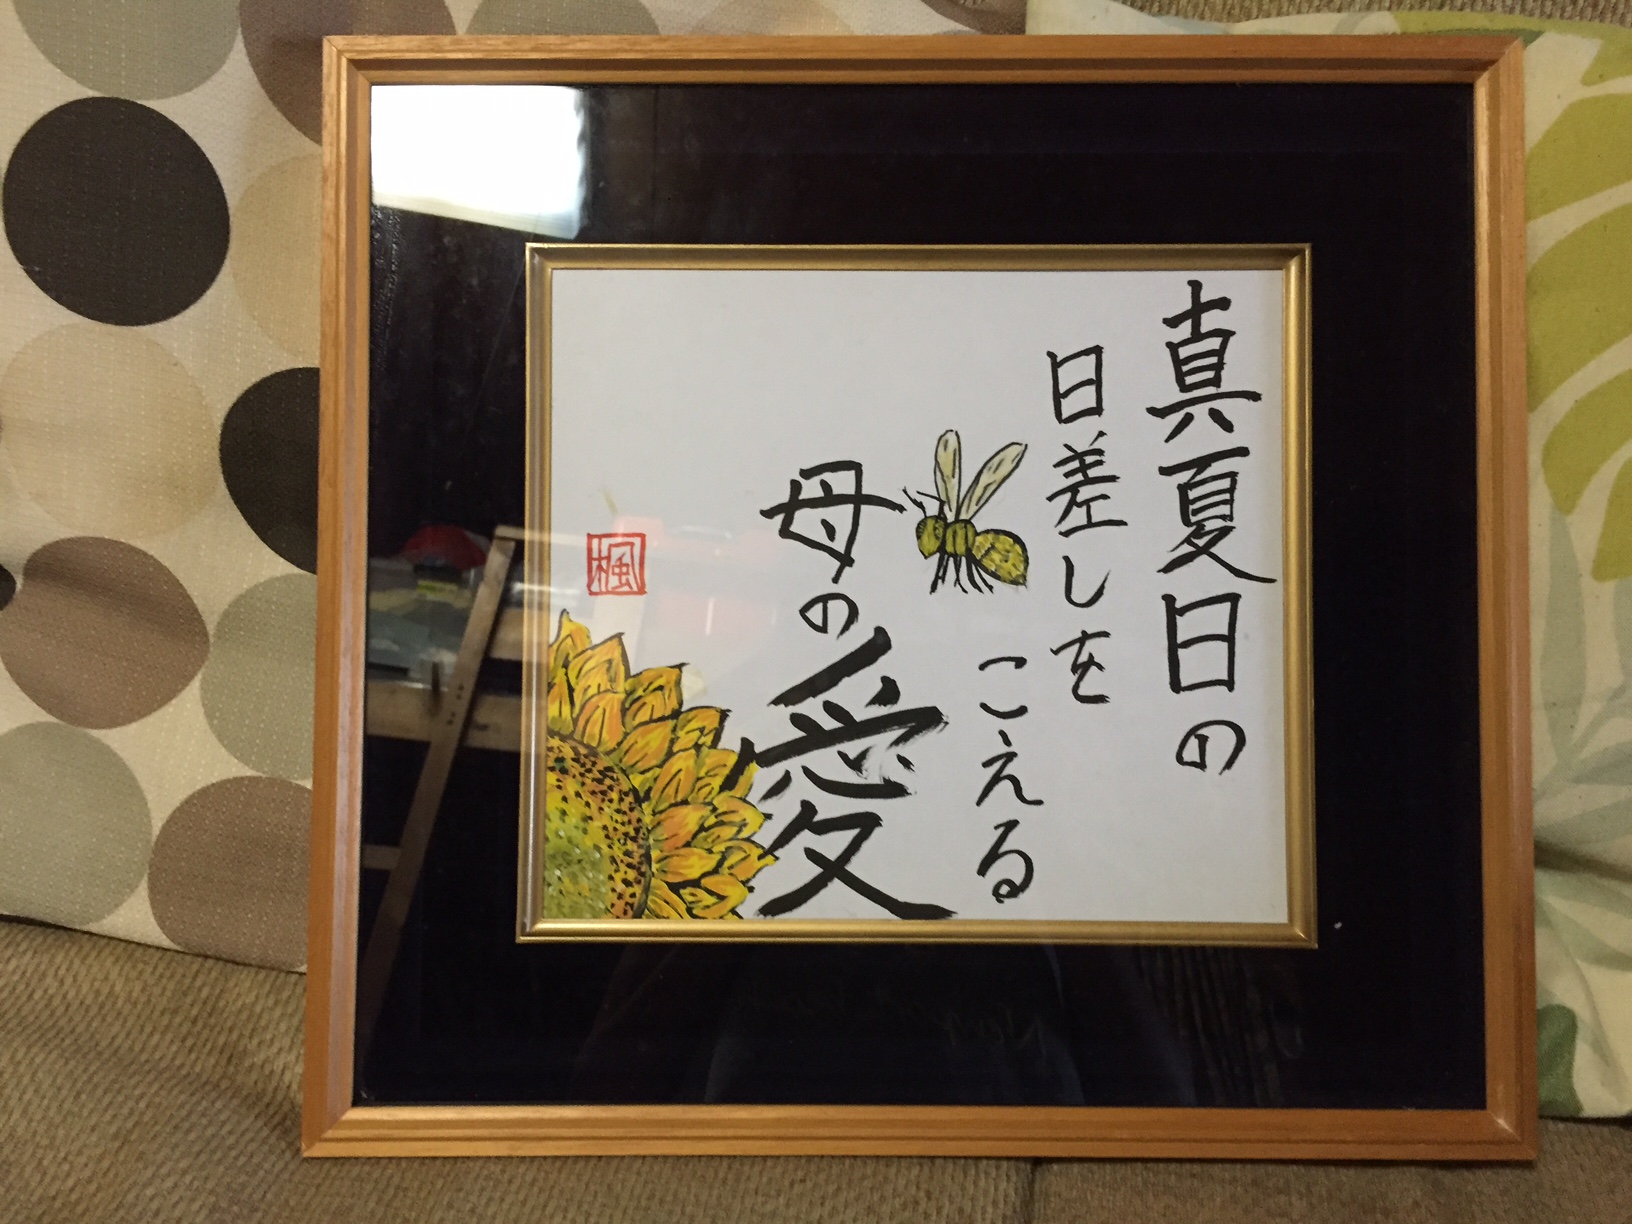 真夏日の
日差しを
こえる
母の愛
楓